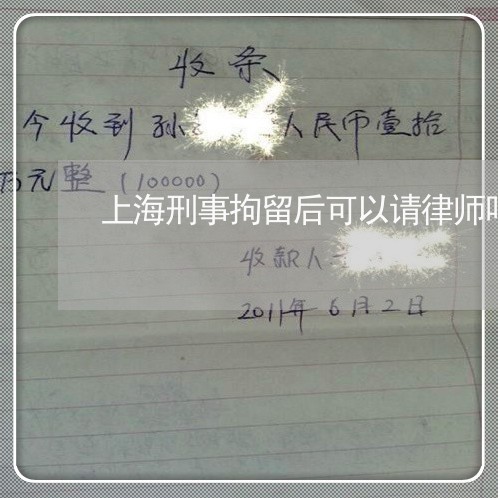 收条
今收到孙 人民币壹拾
万元整(100000)
上海刑事拘留后可以请律师
收款人
2011年6月2日